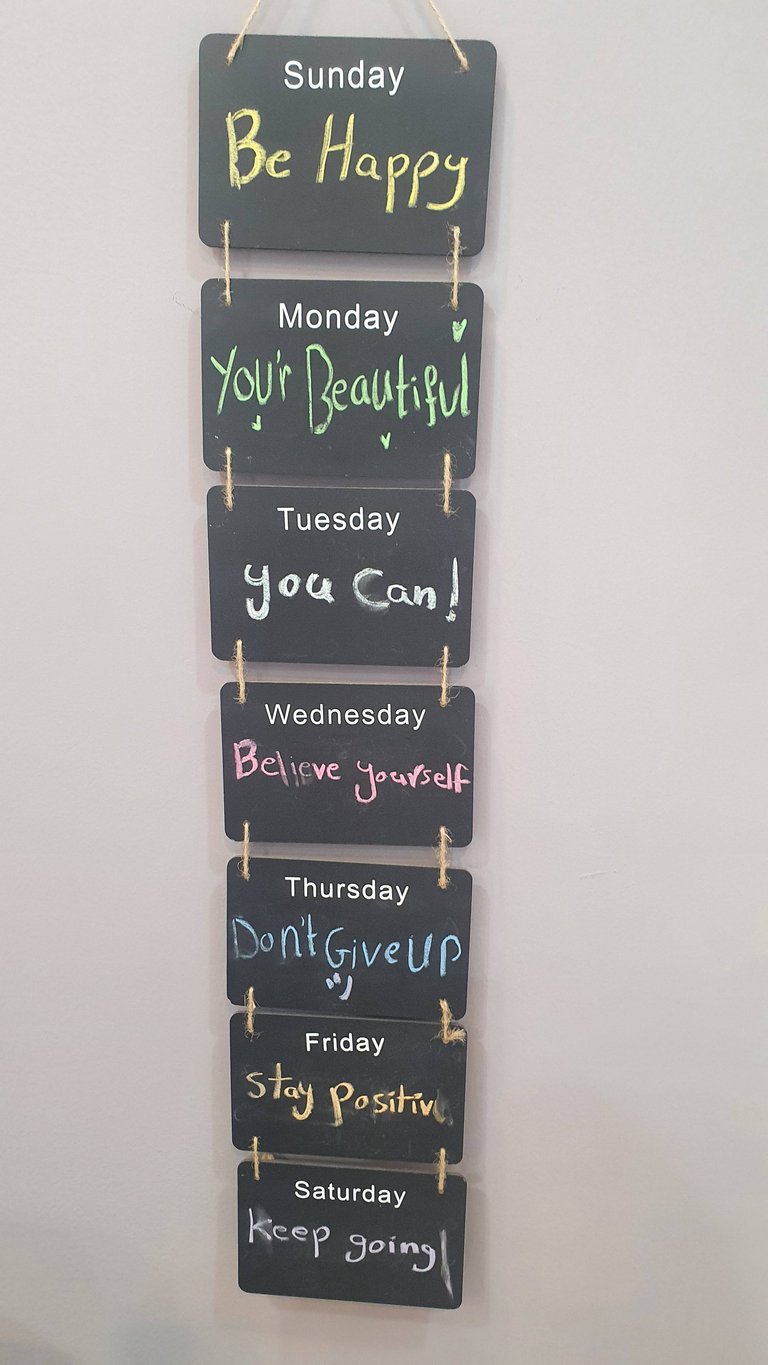 Sunday
Be Happy
Monday
You'r Beautiful
Tuesday
you Can!
Wednesday
Believe yourself
Thursday
Don't Give UP
Friday
Stay Positiv
Saturday
Keep going!